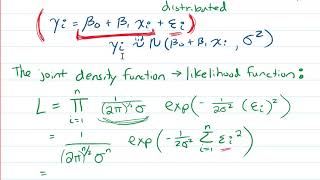 distributed
( γi = β0 + β1 xi + εi )
γi ~ N(β0 + β1 xi , σ²)
The joint density function → likelihood function:
L = ∏ i=1 n 1/((2π)^½ σ) exp(- 1/2σ² (εi)²)
= 1/((2π)^n/2 σ^n) exp(- 1/2σ² Σ i=1 n εi²)
=